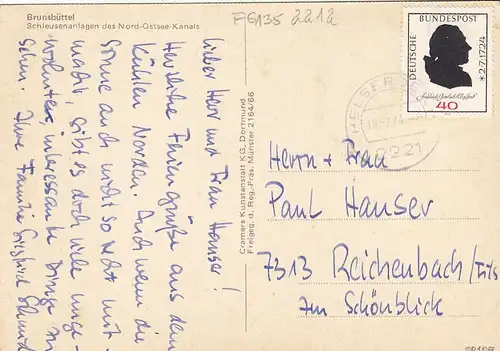 Brunsbüttel
Schleusenanlagen des Nord-Ostsee-Kanals
2212
lieber Herr und Frau Hauser!
Herzliche Feriengrüße aus dem
Kühlen Norden. Auch wenn die
Sonne auch nicht so recht mit-
macht, gibt es doch viele unge-
wohnten, interessante Dinge zu
sehen. Ihre Familie Siegfried
Cramers Kunstanstalt KG, Dortmund
Freigeg. d. Reg.-Präs. Münster 2164/66
DEUTSCHE
BUNDESPOST
* 2.7.1724
Friedrich Gottlieb Klopstock
40
2221
Herrn + Frau
Paul Hauser
7313 Reichenbach/Fils
Im Schönblick